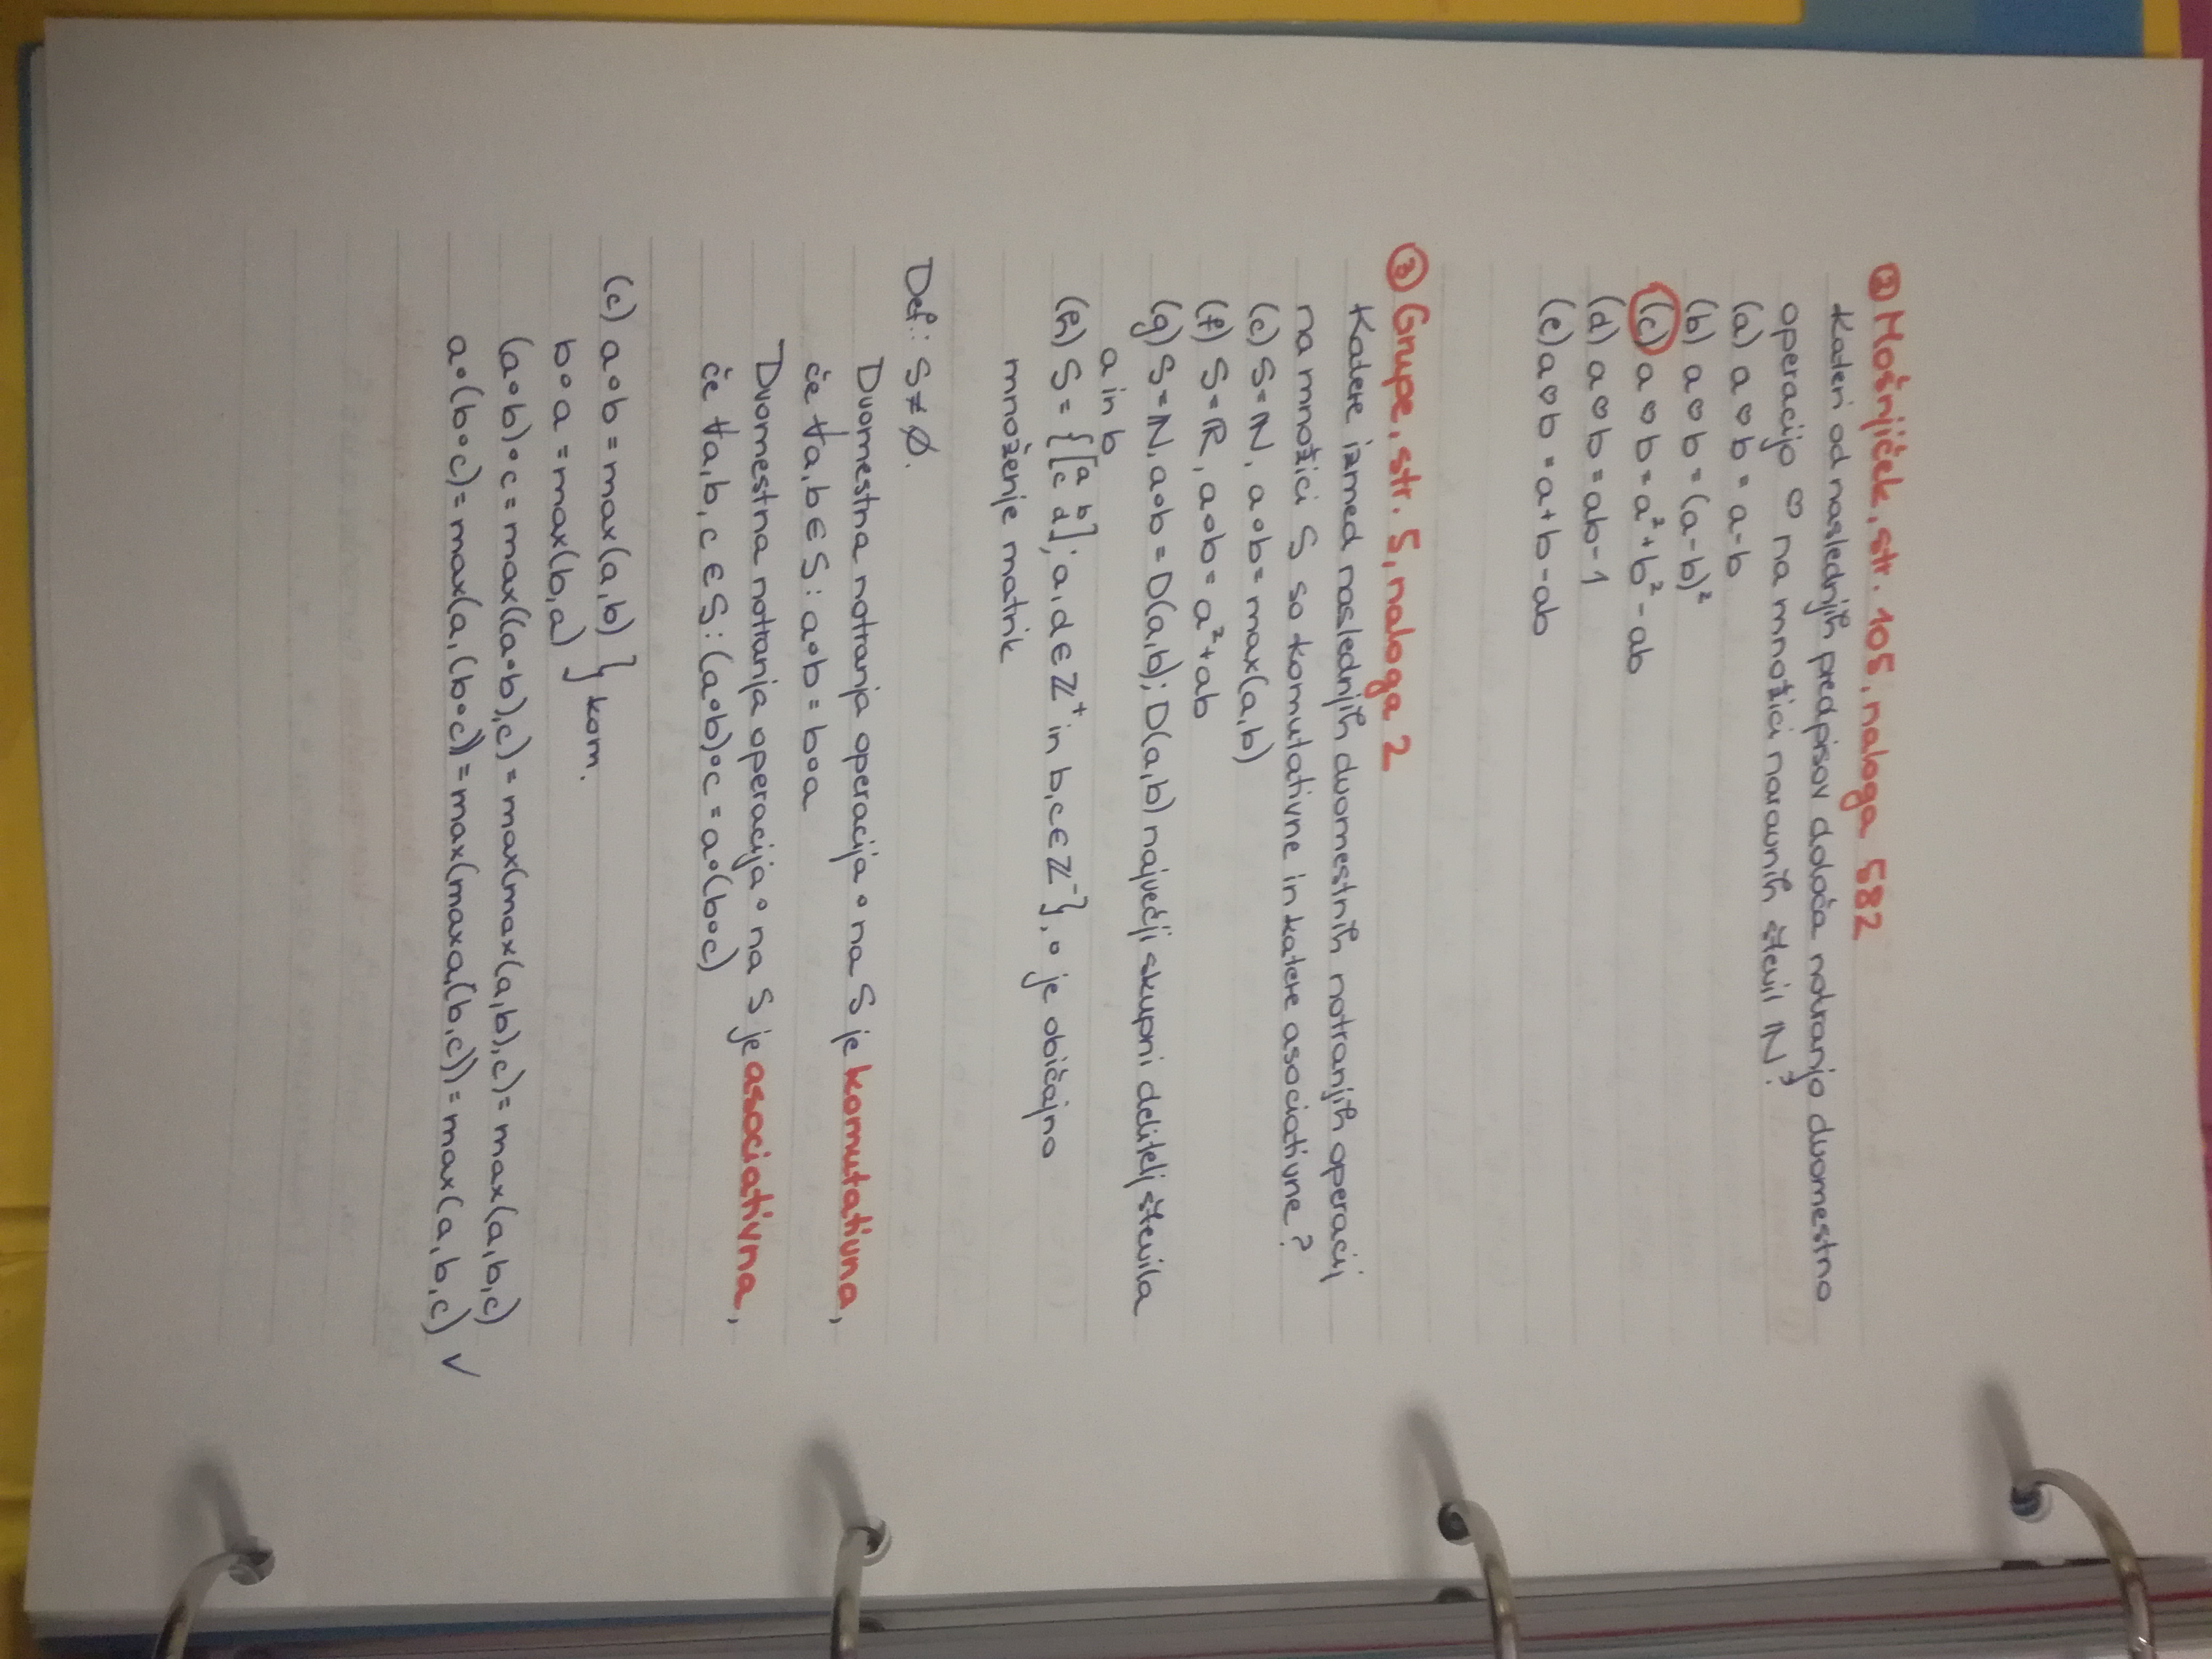 ② Mošnjiček, str. 105, naloga 582
Kateri od naslednjih predpisov določa notranjo dvomestno
operacijo ♡ na množici naravnih števil ℕ?
(a) a ♡ b = a-b
(b) a ♡ b = (a-b)²
(c) a ♡ b = a²+b²-ab
(d) a ♡ b = ab-1
(e) a ♡ b = a+b-ab
③ Grupe, str. 5, naloga 2
Katere izmed naslednjih dvomestnih notranjih operacij
na množici S so komutativne in katere asociativne?
(c) S=ℕ, a∘b= max(a,b)
(f) S=ℝ, a∘b= a²+ab
(g) S=ℕ, a∘b = D(a,b); D(a,b) največji skupni delitelj števila
a in b
(h) S = {[a b c d]; a,d∈ℤ⁺ in b,c∈ℤ⁻}, ∘ je običajno
množenje matrik
Def.: S≠∅.
Dvomestna notranja operacija ∘ na S je komutativna,
če ∀a,b∈S: a∘b = b∘a
Dvomestna notranja operacija ∘ na S je asociativna,
če ∀a,b,c∈S: (a∘b)∘c = a∘(b∘c)
(c) a∘b = max(a,b) } kom.
b∘a = max(b,a)
(a∘b)∘c = max((a∘b),c) = max(max(a,b),c) = max(a,b,c)
a∘(b∘c) = max(a,(b∘c)) = max(maxa,(b,c)) = max(a,b,c) ✓